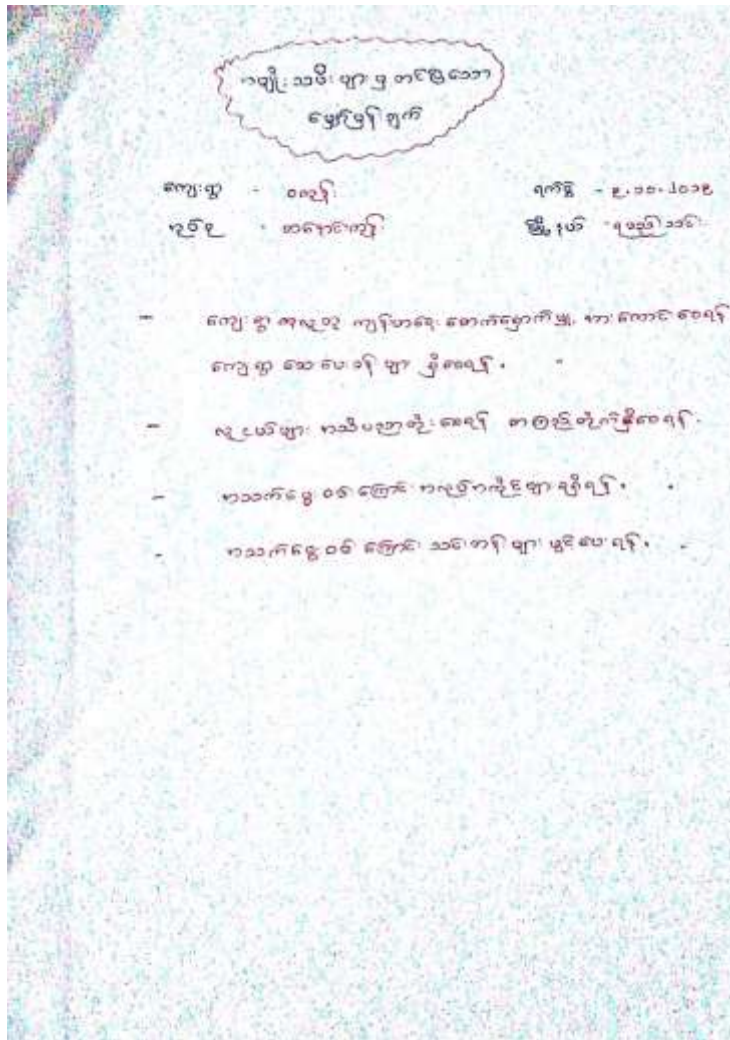 အမျိုးသမီးများမှ တင်ပြသော
မျှော်မှန်းချက်
ကျေးရွာ - ဝလုန်း ရက်စွဲ - ၉.၁၀.၂၀၁၉
ဥပဒ - တနောင်းကုန်း မြို့နယ် - ရမည်းသင်း
- ကျေးရွာ အလူထု ကျန်းမာရေး စောက်ရှောက်မှု့ ကားကောင်းစေရန်
ကျေးရွာ ဆေးပေးခန်းများ ရှိစေရန်။
- လူငယ်များ အသိပညာတိုးစေရန် စာကြည့်တိုက်ရှိစေရန်.
- အသက်မွေးဝမ်းကြောင်း အလုပ်အကိုင်များ ရရှိရန်။
- အသက်မွေးဝမ်းကြောင်း သင်တန်းများ ဖွင့်ပေးရန်။